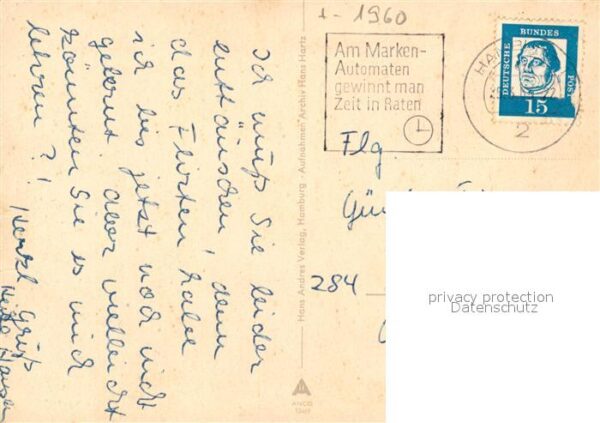 Ich muß Sie leider
enttäuschen, denn
das Flirten, habe
ich bis jetzt noch nicht
gelernt aber vielleicht
könnten Sie es mich
lehren?!
Herzl. Gruß
+ - 1960
Am Marken-
Automaten
gewinnt man
Zeit in Raten
DEUTSCHE BUNDES POST
15
2
Flg.
284
Hans Andres Verlag, Hamburg · Aufnahmen Archiv Hans Hartz
ANDO
privacy protection
Datenschutz